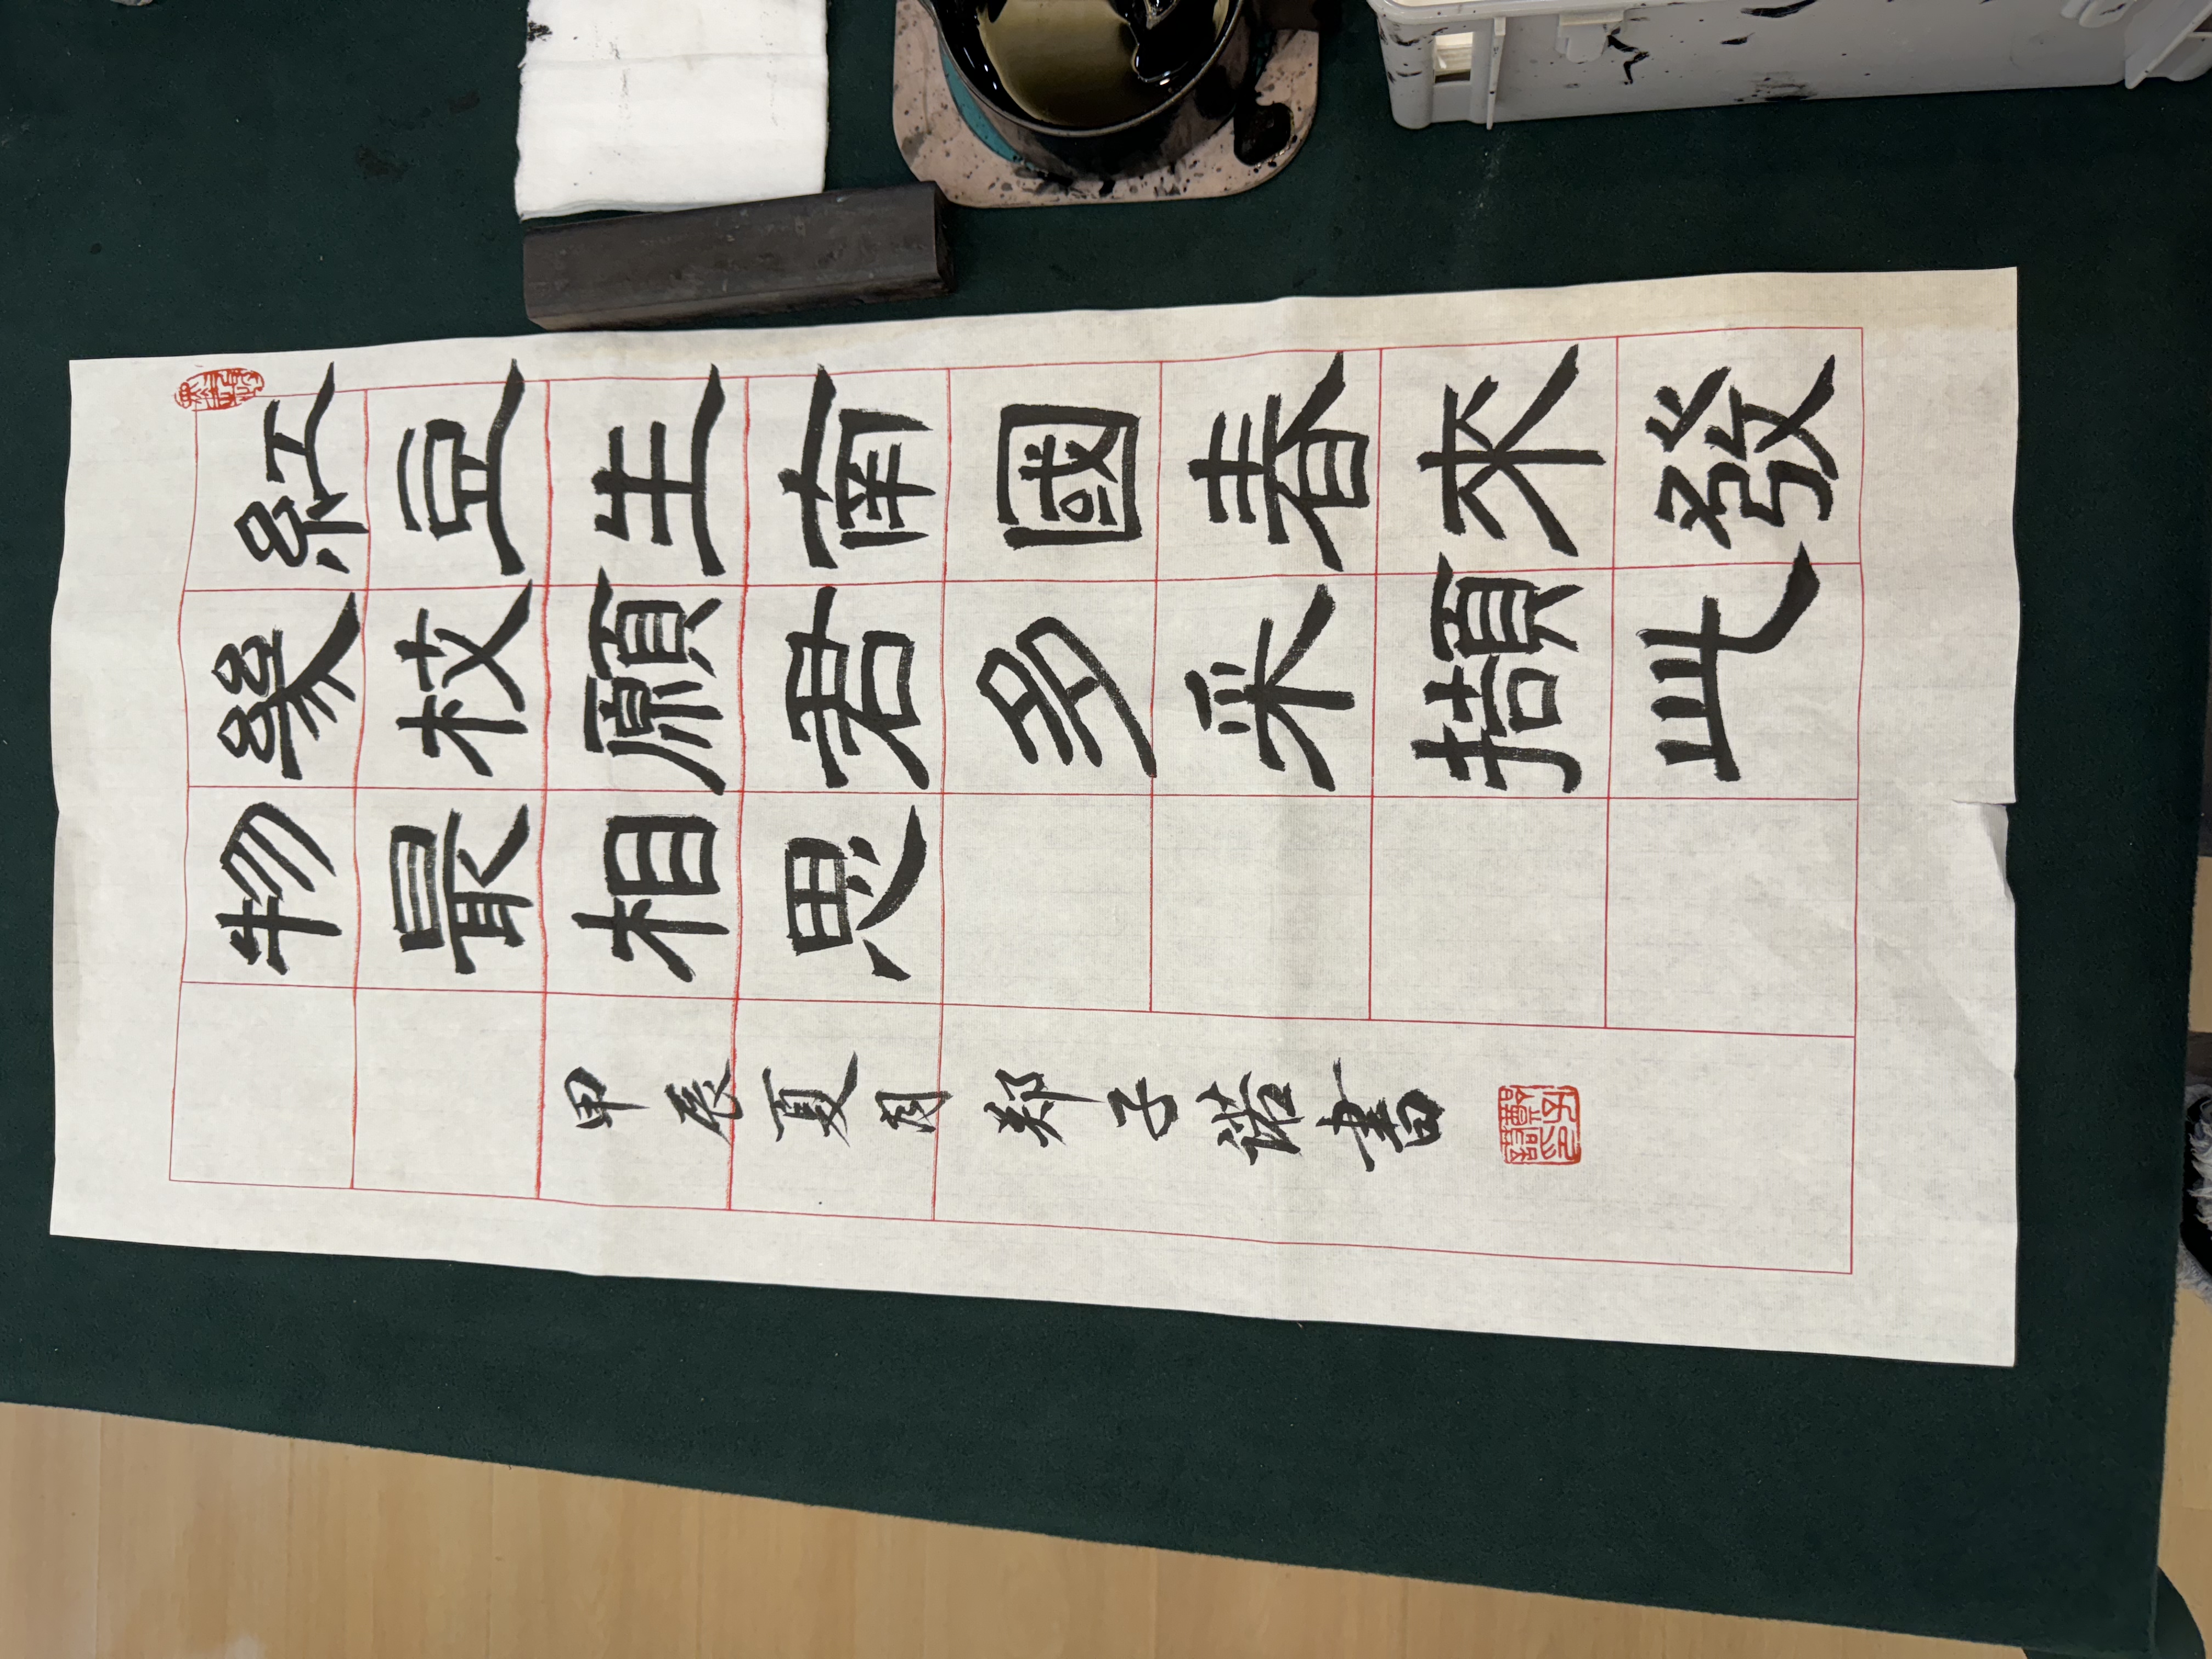 紅豆生南國春來發
幾枝願君多采擷此
物最相思
甲辰夏月郑子诺書